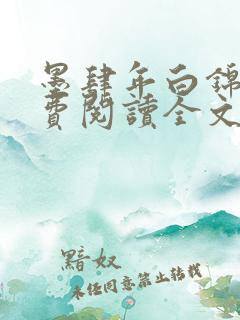 墨肆年白錦
費閱讀全文
黯奴
未经同意禁止转载